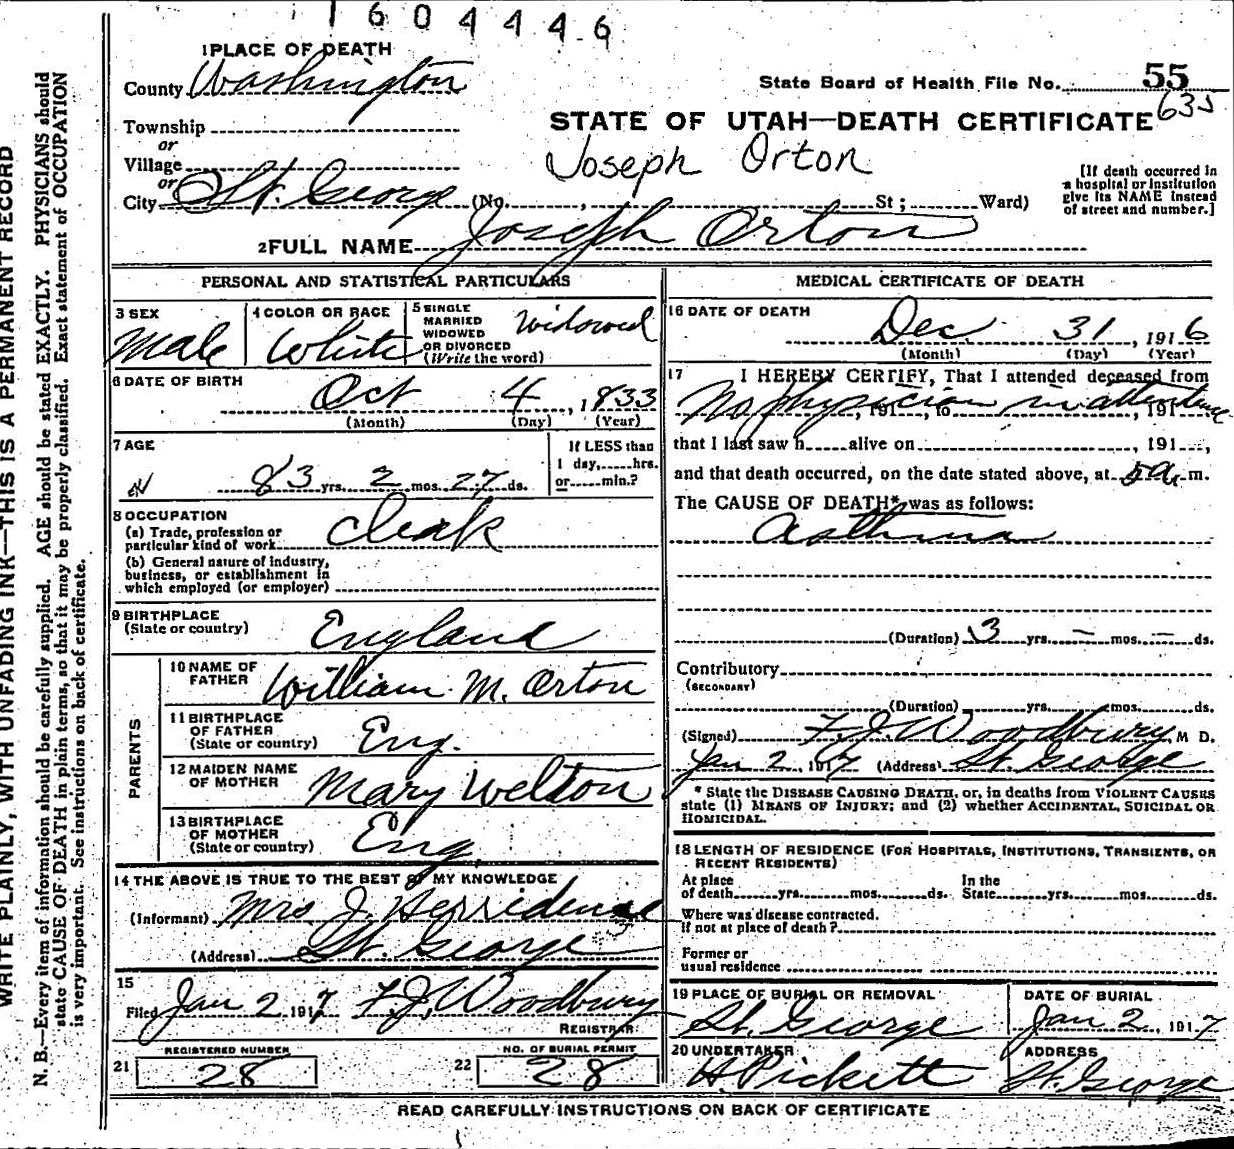 1604446
1 PLACE OF DEATH
County Washington
State Board of Health File No. 55
635
Township
or
Village
or
City St. George (No. , St ; Ward)
STATE OF UTAH—DEATH CERTIFICATE
Joseph Orton
[If death occurred in
a hospital or institution
give its NAME instead
of street and number.]
2 FULL NAME Joseph Orton
PERSONAL AND STATISTICAL PARTICULARS
3 SEX
Male
4 COLOR OR RACE
White
5 SINGLE
MARRIED
WIDOWED
OR DIVORCED
(Write the word)
Widowed
6 DATE OF BIRTH
Oct 4, 1833
(Month) (Day) (Year)
7 AGE
83 yrs. 2 mos. 27 ds.
If LESS than
1 day, hrs.
or min.?
8 OCCUPATION
(a) Trade, profession or
particular kind of work Cleak
(b) General nature of industry,
business, or establishment in
which employed (or employer)
9 BIRTHPLACE
(State or country) England
PARENTS
10 NAME OF
FATHER William M. Orton
11 BIRTHPLACE
OF FATHER
(State or country) Eng.
12 MAIDEN NAME
OF MOTHER Mary Welton
13 BIRTHPLACE
OF MOTHER
(State or country) Eng
14 THE ABOVE IS TRUE TO THE BEST OF MY KNOWLEDGE
(Informant) Mrs J.
(Address) St. George
15
Filed Jan 2 1917 F. J. Woodbury
REGISTRAR
21 REGISTERED NUMBER
28
22 NO. OF BURIAL PERMIT
28
MEDICAL CERTIFICATE OF DEATH
16 DATE OF DEATH
Dec. 31, 1916
(Month) (Day) (Year)
17 I HEREBY CERTIFY, That I attended deceased from
No physician in attendance, 191 , to , 191
that I last saw h alive on , 191 ,
and that death occurred, on the date stated above, at 5 a. m.
The CAUSE OF DEATH* was as follows:
Asthma
(Duration) 3 yrs. – mos. – ds.
Contributory
(SECONDARY)
(Duration) yrs. mos. ds.
(Signed) F. J. Woodbury, M D.
Jan 2, 1917 (Address) St. George
* State the DISEASE CAUSING DEATH, or, in deaths from VIOLENT CAUSES
state (1) MEANS OF INJURY; and (2) whether ACCIDENTAL, SUICIDAL OR
HOMICIDAL.
18 LENGTH OF RESIDENCE (FOR HOSPITALS, INSTITUTIONS, TRANSIENTS, OR
RECENT RESIDENTS)
At place
of death yrs. mos. ds.
In the
State yrs. mos. ds.
Where was disease contracted.
if not at place of death?
Former or
usual residence
19 PLACE OF BURIAL OR REMOVAL
St. George
DATE OF BURIAL
Jan 2, 1917
20 UNDERTAKER
H Pickett
ADDRESS
St. George
READ CAREFULLY INSTRUCTIONS ON BACK OF CERTIFICATE
WRITE PLAINLY, WITH UNFADING INK—THIS IS A PERMANENT RECORD
N. B.—Every item of information should be carefully supplied. AGE should be stated EXACTLY. PHYSICIANS should
state CAUSE OF DEATH in plain terms, so that it may be properly classified. Exact statement of OCCUPATION
is very important. See instructions on back of certificate.